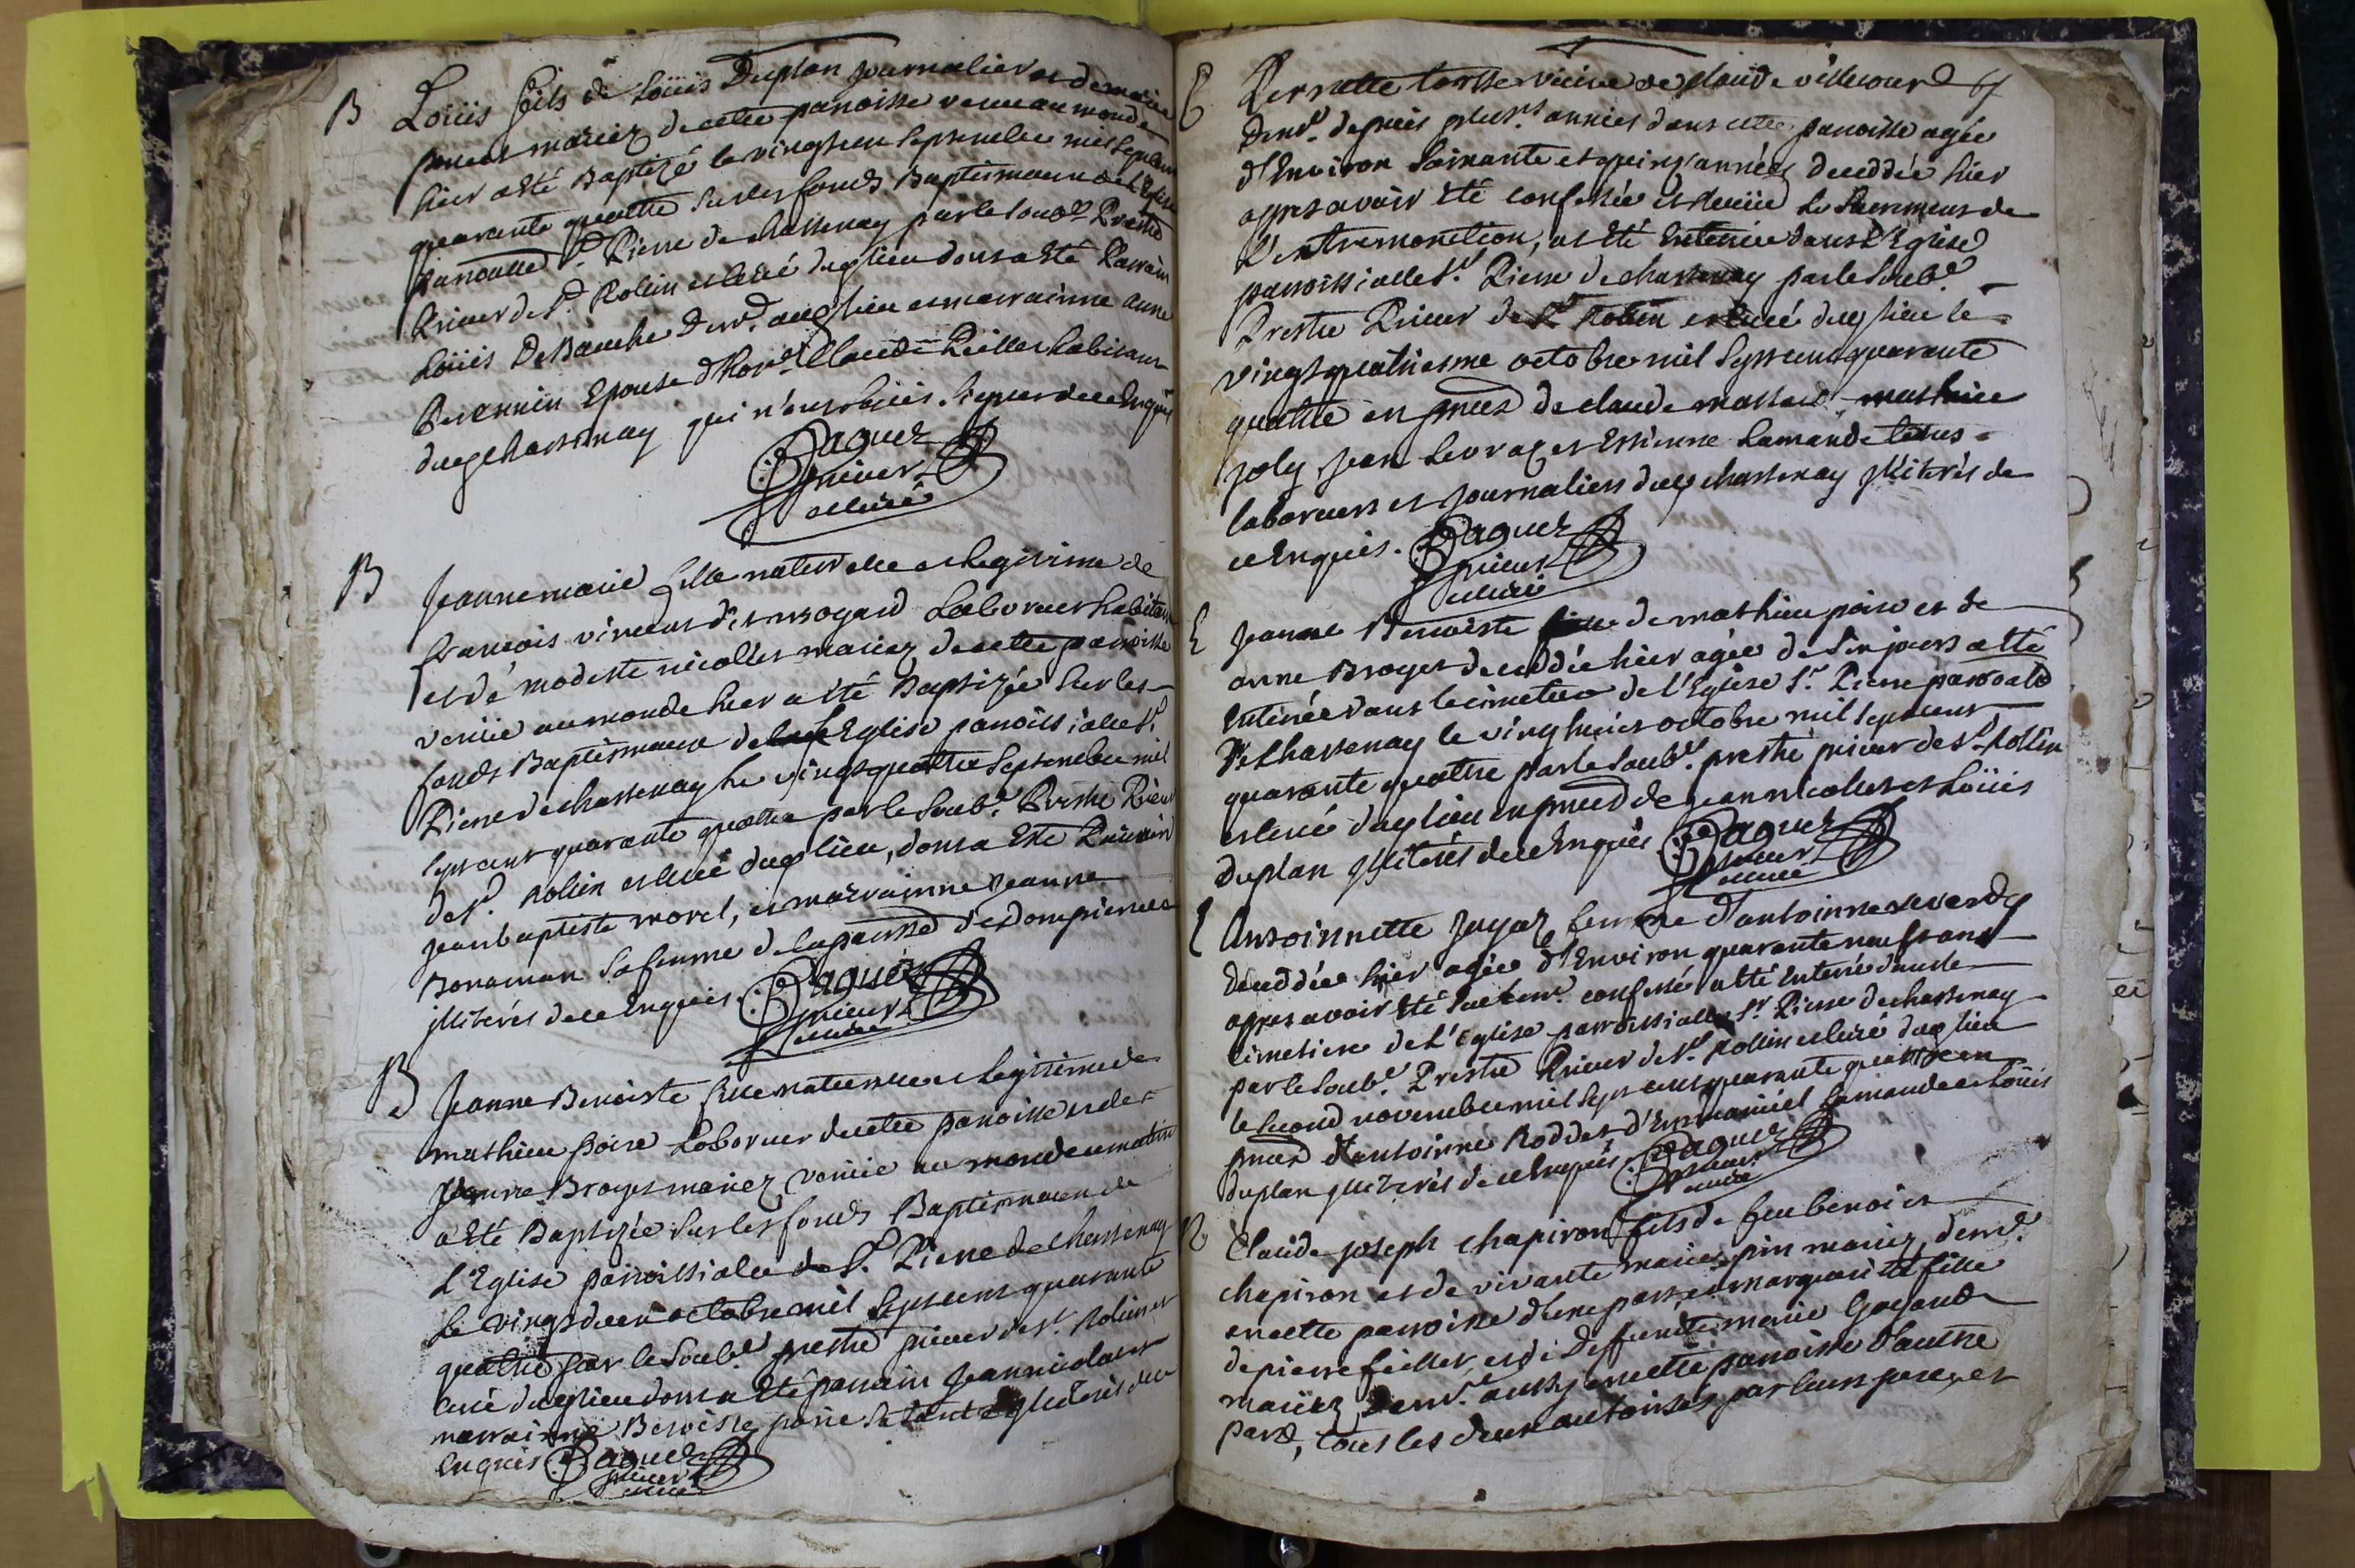 B Loüis fils de Loüis Duplan journalier et de marie
mariez de cette parroisse venu au monde
hier a Eté Baptizé le vingt un Septembre mil Sept cent
quarante quattre Sur les fonds Baptismaux de L'Eglise
St. Pierre de chassenay par le Soubd. Prestre
Prieur de St. Rollin et curé dud lieu dont a Eté Parrain
Loüis Debauche Demt. aud lieu et marrainne anne
Epouse d'honn. Claude Feillet habitant
dud chassenay qui n'ont Sceus Signer de ce Enquis
Baguez
prieur
et curé
B Jeanne marie fille naturelle et Legitime de
francois vincent dit Laboureur habitant
et de modeste nicollet mariez de cette parroisse
venüe au monde hier a Eté Baptizée Sur les
fonds Baptismaux de L'Eglise parroissialle St.
Pierre de chassenay Le vingt quattre Septembre mil
Sept cent quarante quattre par le Soubd. Prestre Prieur
de St. Rollin et curé dud lieu, dont a Eté Parrain
jean baptiste morel, et marrainne Jeanne
Bonamour Sa femme de la parroisse de dompierre
jlliterés de ce Enquis Baguez
prieur
et curé
B Jeanne Benoiste fille naturelle et Legitime de
mathieu poire Laboureur de cette parroisse et de
jeanne Broyer mariez venüe au monde ce matin
a Eté Baptizée Sur les fonds Baptismaux de
L'Eglise parroissialle de St. Pierre de chassenay
Le vingt deux octobre mil Sept cent quarante
quattre par le Soubd. prestre prieur de St. Rollin et
curé dud lieu dont a Eté parrain Jean nicolas et
marrainne Benoiste poire Sa tante jlliterés de ce
enquis Baguez
prieur
et curé
E Pernette veüve de claude villecourt
Demt. depuis plusrs. années dans cette parroisse agée
d'Environ Soixante et quinz années deceddée hier
apres avoir Eté confessée et reçüe Le Sacrement de
L'extremonction, a Eté Enterrée dans L'Eglise
parroissialle St. Pierre de chassenay par le Soubd.
Prestre Prieur de St. Rollin et curé dud lieu le
vingt quatriesme octobre mil Sept cent quarante
quattre en pnce de claude massard mathieu
joly jean Levraz et Estienne Lamande tous
laboreurs et journaliers dud chassenay jlliterés de
ce Enquis. Baguez
prieur
et curé
E Jeanne Benoiste fille de mathieu poire et de
anne Broyer deceddée hier agée de Six jours a Eté
Enterrée dans le cimetiere de L'Eglise St. Pierre parroalle
de chassenay le vingt huict octobre mil Sept cent
quarante quattre par le Soubd. prestre prieur de St. Rollin
et curé dud lieu en pnce de jean nicolas et Loüis
Duplan jlliterés de ce Enquis Baguez
prieur
et curé
E Antoinnette femme d'antoinne
deceddée hier agée d'Environ quarante neuf ans
apres avoir Eté confessée a Eté Enterrée dans le
cimetiere de L'Eglise parroissialle St. Pierre de chassenay
par le Soubd. Prestre Prieur de St. Rollin et curé dud lieu
le Second novembre mil Sept cent quarante quattre en
pnce d'antoinne Roddet d'Emmanuel Lamande et Loüis
duplan jlliterés de ce Enquis Baguez
prieur
et curé
Claude joseph chapiron fils de feu benoict
chapiron et de vivante marie pin mariez, demt.
en cette parroisse d'une part, et marguerite fille
de pierre feillet et de deffuncte marie Goyard
mariez demt. aussy en cette parroisse d'autre
part, tous les deux autorisés par leurs peres et